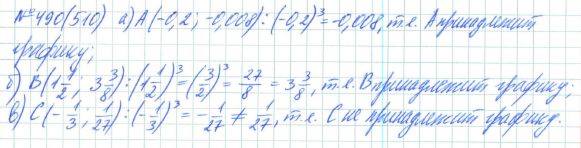 №490(510) а) А(-0,2; -0,008): (-0,2)³=-0,008, т.е. А принадлежит
графику;
б) В(1 1/2; 3 3/8): (1 1/2)³=(3/2)³=27/8=3 3/8, т.е. В принадлежит графику;
в) С(-1/3; 1/27): (-1/3)³=-1/27≠1/27, т.е. С не принадлежит графику.